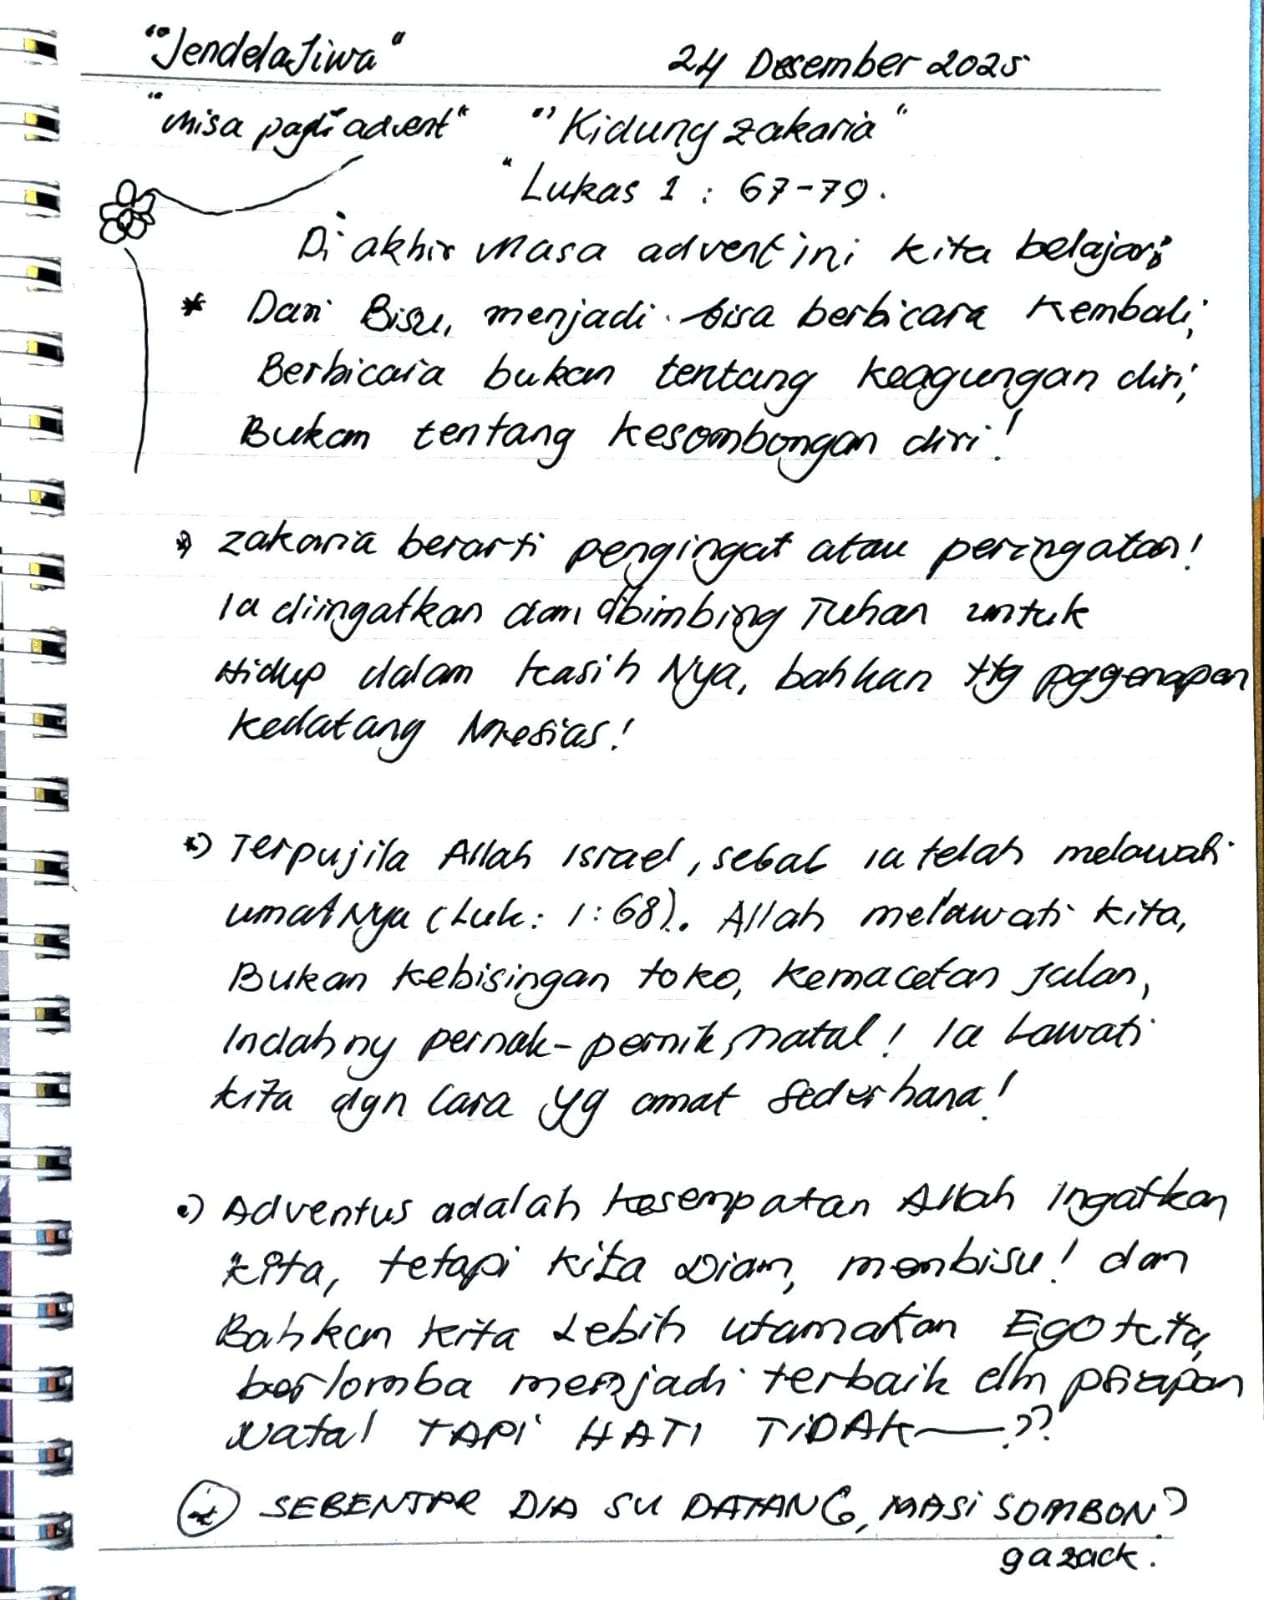 "Jendela Jiwa" 24 Desember 2025
"Misa pagi advent" "Kidung Zakaria"
"Lukas 1 : 67-79.
Di akhir masa advent ini kita belajar;
* Dari Bisu, menjadi bisa berbicara Kembali;
Berbicara bukan tentang keagungan diri;
Bukan tentang kesombongan diri!
*) Zakaria berarti pengingat atau peringatan!
Ia diingatkan dan dibimbing Tuhan untuk
Hidup dalam kasih Nya, bahkan ttg pggenapan
kedatang Mesias!
*) Terpujila Allah Israel, sebab ia telah melawati
umat Nya (Luk: 1:68). Allah melawati kita,
Bukan kebisingan toko, kemacetan jalan,
Indahny pernak-pernik Natal! Ia Lawati
kita dgn cara yg amat sederhana!
•) Adventus adalah kesempatan Allah Ingatkan
kita, tetapi kita Diam, menbisu! dan
Bahkan kita Lebih utamakan Ego kita,
berlomba menjadi terbaik dlm psiapan
Natal TAPI HATI TIDAK—??
SEBENTAR DIA SU DATANG, MASI SOMBON?
gazack.